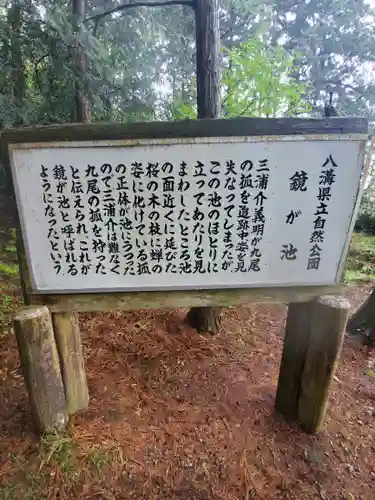 八溝県立自然公園
鏡が池
三浦介義明が九尾
の狐を追跡中姿を見
失なってしまったが
この池のほとりに
立ってあたりを見
まわしたところ池
の面近くに延びた
桜の木の枝に蝉の
姿に化けている狐
の正体が池にうつった
ので三浦介は難なく
九尾の狐を狩った
と伝えられこれが
鏡が池と呼ばれる
ようになったという